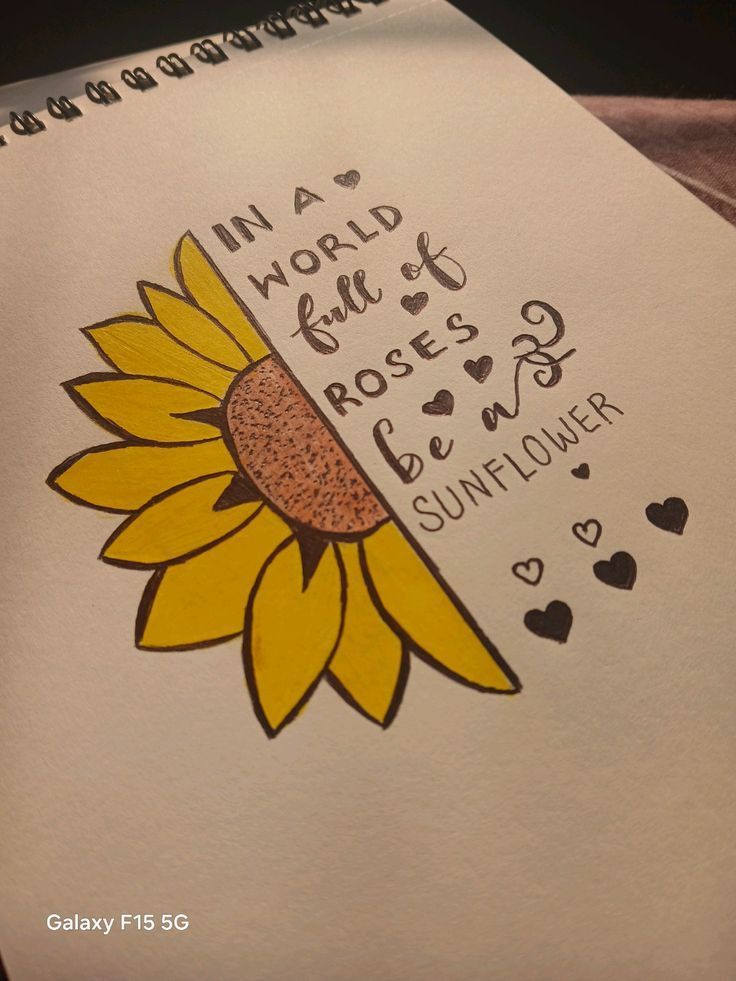 IN A
WORLD
full of
ROSES
be a
SUNFLOWER
Galaxy F15 5G